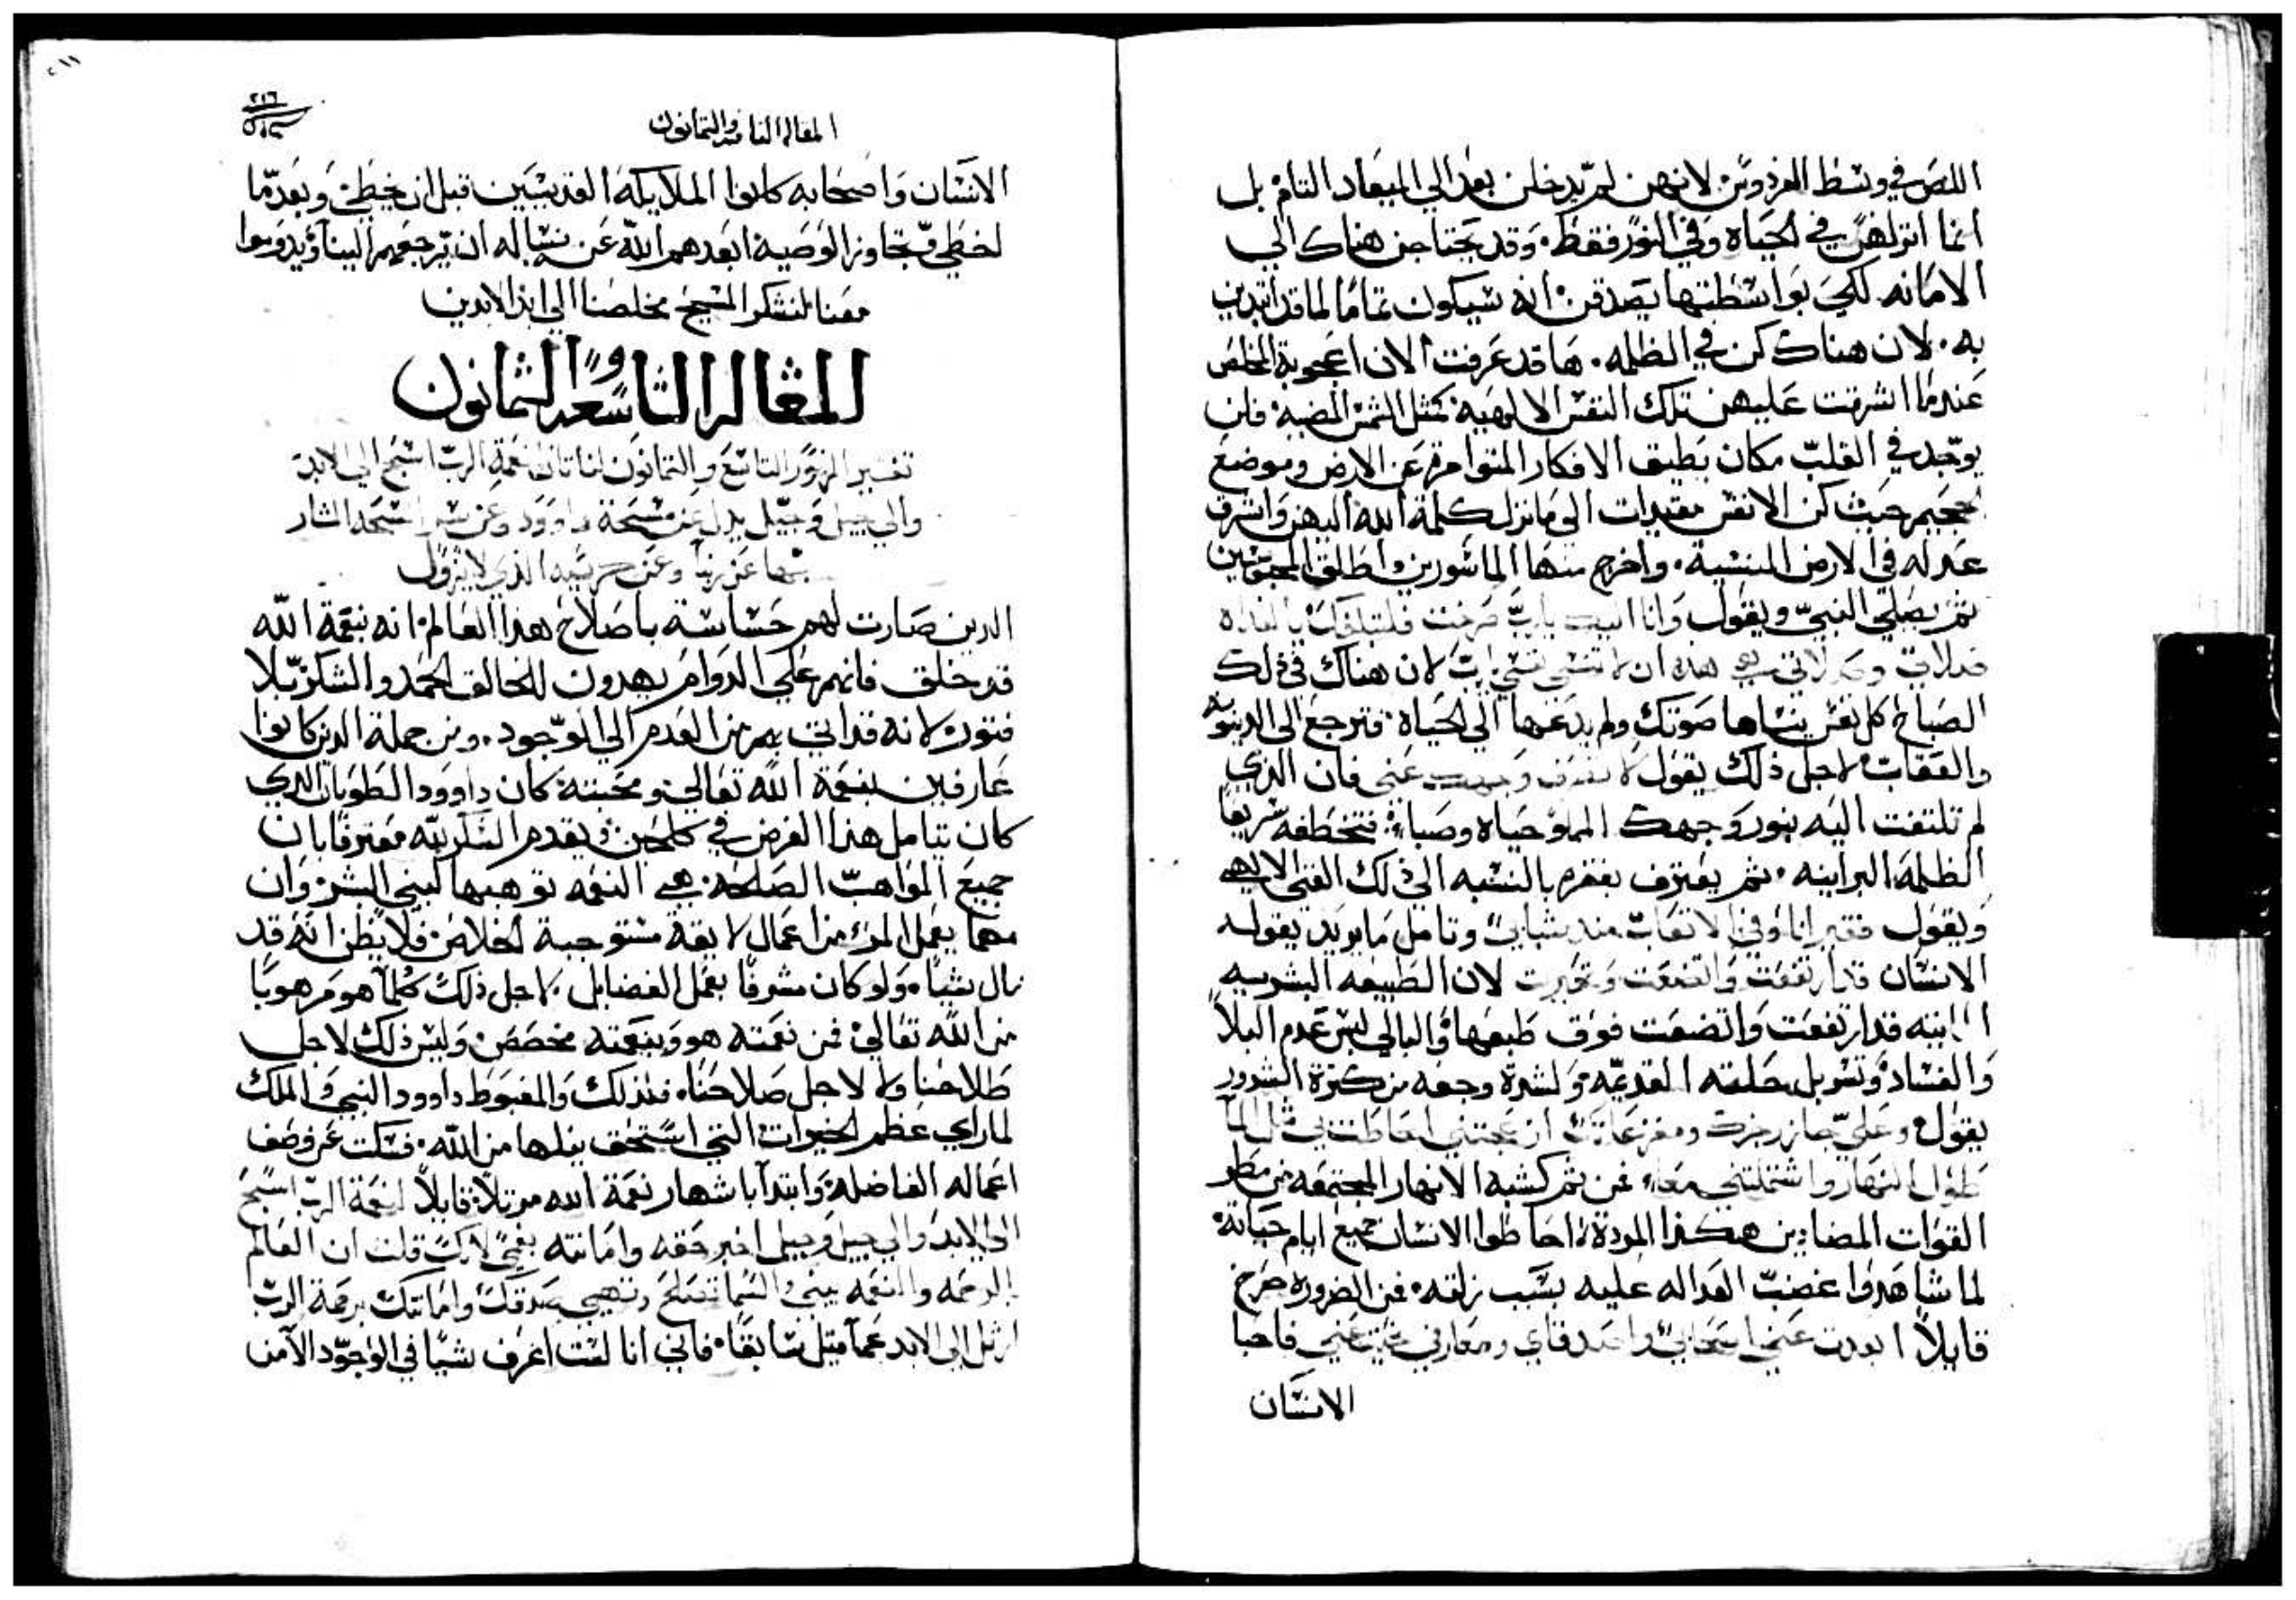 اللص في وسط الفردوس لانهن لم يدخلن بعد الي الميعاد التام بل
انما انزلهن في الحياه وفي النور فقط. وقد يحتاجن هناك الي
الامانه لكي بواسطتها يصدقن انه سيكون تماما لما قد ابتدين
به. لان هناك كن في الظلمه. ها قد عرفت الان اعجوبة المخلص
عندما اشرقت عليهن تلك النفس الالهيه كمثل الشمس المضيه فلن
يوجد في القلب مكان يطيق الافكار عن الارض وموضع
الجحيم حيث كن الانفس مقيدات الي ما نزل كلمة الله اليهن واشرق
عدله في الارض المنسية. واخرج منها الماسورين واطلق المحبوسين
ثم يصلي النبي ويقول وانا اليك يارب صرخت فلتبلغك بالغداه
صلاتي لان هناك في ذلك
الصباح كل نفس ينساها صوتك ولم يدعها الي الحياة. فترجع الي الدينونه
والعقاب لاجل ذلك يقول لا تصرف وجهك عني فان الذي
لم تلتفت اليه بنور وجهك المملو حياه وضيا. فتخطفه سريعا
الظلمة البرانيه. ثم يعترف بفقره بالنسبه الي ذلك الغني الالهي
ويقول فقير انا وفي الاتعاب منذ شبابي وتامل ما يريد يقوله
الانسان قد ارتفعت واتضعت وتحيرت لان الطبيعه البشريه
قد ارتفعت واتضعت فوق طبعها والبالي لبس عدم البلا
والفساد وتسربل بحلته القديمه ولشدة وجعه من كثرة الشرور
يقول وعلي جاز رجزك ومفزعاتك ازعجتني احاطت بي مثل الما
طول النهار واشتملتني معا. فمن ثم كشبه الانهار المجتمعه من مطر
القوات المضادين هكذا المردة احاطوا الانسان جميع ايام حياته
لما شاهدوا غضب العداله عليه بسبب زلته. فمن الضروره صرخ
قايلا ابعدت عني اصحابي واصدقاي ومعارفي عني فاحبا
الانسان
٢١٦
المقاله الثامنه والثمانون
الانسان واصحابه كانوا الملايكه القديسين قبل ان يخطي وبعد ما
اخطي وتجاوز الوصية ابعدهم الله عن نساله ان يرجعهم الينا
معنا لنشكر المسيح مخلصنا الي ابد الابدين
المقاله التاسعه والثمانون
تفسير المزمور التاسع والثمانون لناتان نعمة الرب اسبح الي الابد
والي جيل وجيل يدل عن مسحة داوود وعن
الذي لا يزول
الذين صارت لهم حساسة باصلاح هذا العالم. انه بنعمة الله
قد خلق فانهم علي الدوام يهدون للخالق الحمد والشكر بلا
فتور لانه قد اتي بهم من العدم الي الوجود. ومن جملة الذين كانوا
عارفين بنعمة الله تعالي ومحبته كان داوود الطوباني الذي
كان يتامل هذا الغرض في كل حين ويقدم الشكر لله معترفا بان
جميع المواهب الصالحه. هي النعمه توهبها لبني البشر وان
مهما يعمل المرء من اعمال لايقة مستوجبة الخلاص فلا يظن انه قد
نال شيا. ولو كان مشرفا بعمل الفضايل. لاجل ذلك كلما هو موهوبا
من الله تعالي فمن نعمته هو وبنعمته مخصص وليس ذلك لاجل
طلاحنا ولا لاجل صلاحنا. فلذلك والمغبوط داوود النبي والملك
لما راي عظم الخيرات التي استحق ينلها من الله. فسكت عن وصف
اعماله الفاضله وابتدا باشهار نعمة الله مرتلا قايلا لنعمة الرب اسبح
الي الابد والي جيل وجيل اخبر حقه وامانته بفمي لانك قلت ان العالم
بالرحمه والنعمه يبني السما وتهيي صدقك وامانتك برحمة الرب
ارتل الي الابد عما قيل سابقا. فاني انا لست اعرف شيا في الوجود الا من